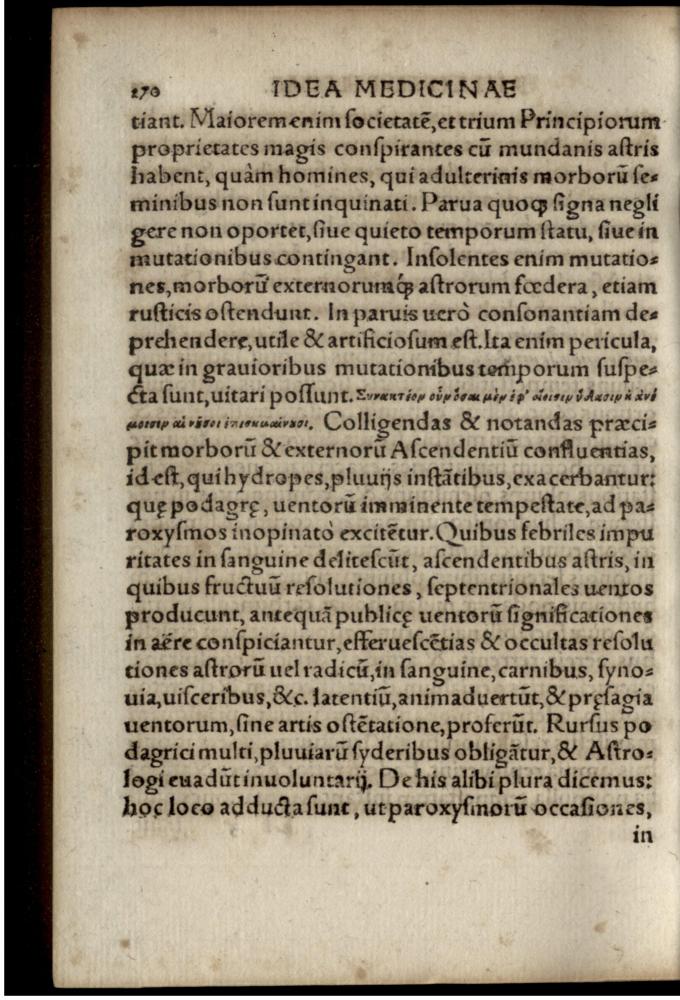 270 IDEA MEDICINAE
tiant. Maiorem enim societatē, et trium Principiorum
proprietates magis conspirantes cū mundanis astris
habent, quàm homines, qui adulterinis morborū se-
minibus non sunt inquinati. Parua quoqꝫ signa negli
gere non oportet, siue quieto temporum statu, siue in
mutationibus contingant. Insolentes enim mutatio-
nes, morborū externorumqꝫ astrorum fœdera, etiam
rusticis ostendunt. In paruis uerò consonantiam de-
prehendere, utile & artificiosum est. Ita enim pericula,
quæ in grauioribus mutationibus temporum suspe-
cta sunt, uitari possunt.
Colligendas & notandas præci-
pit morborū & externorū Ascendentiū confluentias,
id est, qui hydropes, pluuijs instātibus, exacerbantur:
quę podagrę, uentorū imminente tempestate, ad pa-
roxysmos inopinatò excitētur. Quibus febriles impu
ritates in sanguine delitescūt, ascendentibus astris, in
quibus fructuū resolutiones, septentrionales uentos
producunt, antequā publicę uentorū significationes
in aëre conspiciantur, efferuescētias & occultas resolu
tiones astrorū uel radicū, in sanguine, carnibus, syno-
uia, uisceribus, &c. latentiū, animaduertūt, & pręsagia
uentorum, sine artis ostētatione, proferūt. Rursus po
dagrici multi, pluuiarū syderibus obligātur, & Astro-
logi euadūt inuoluntarij. De his alibi plura dicemus:
hoc loco adducta sunt, ut paroxysmorū occasiones,
in